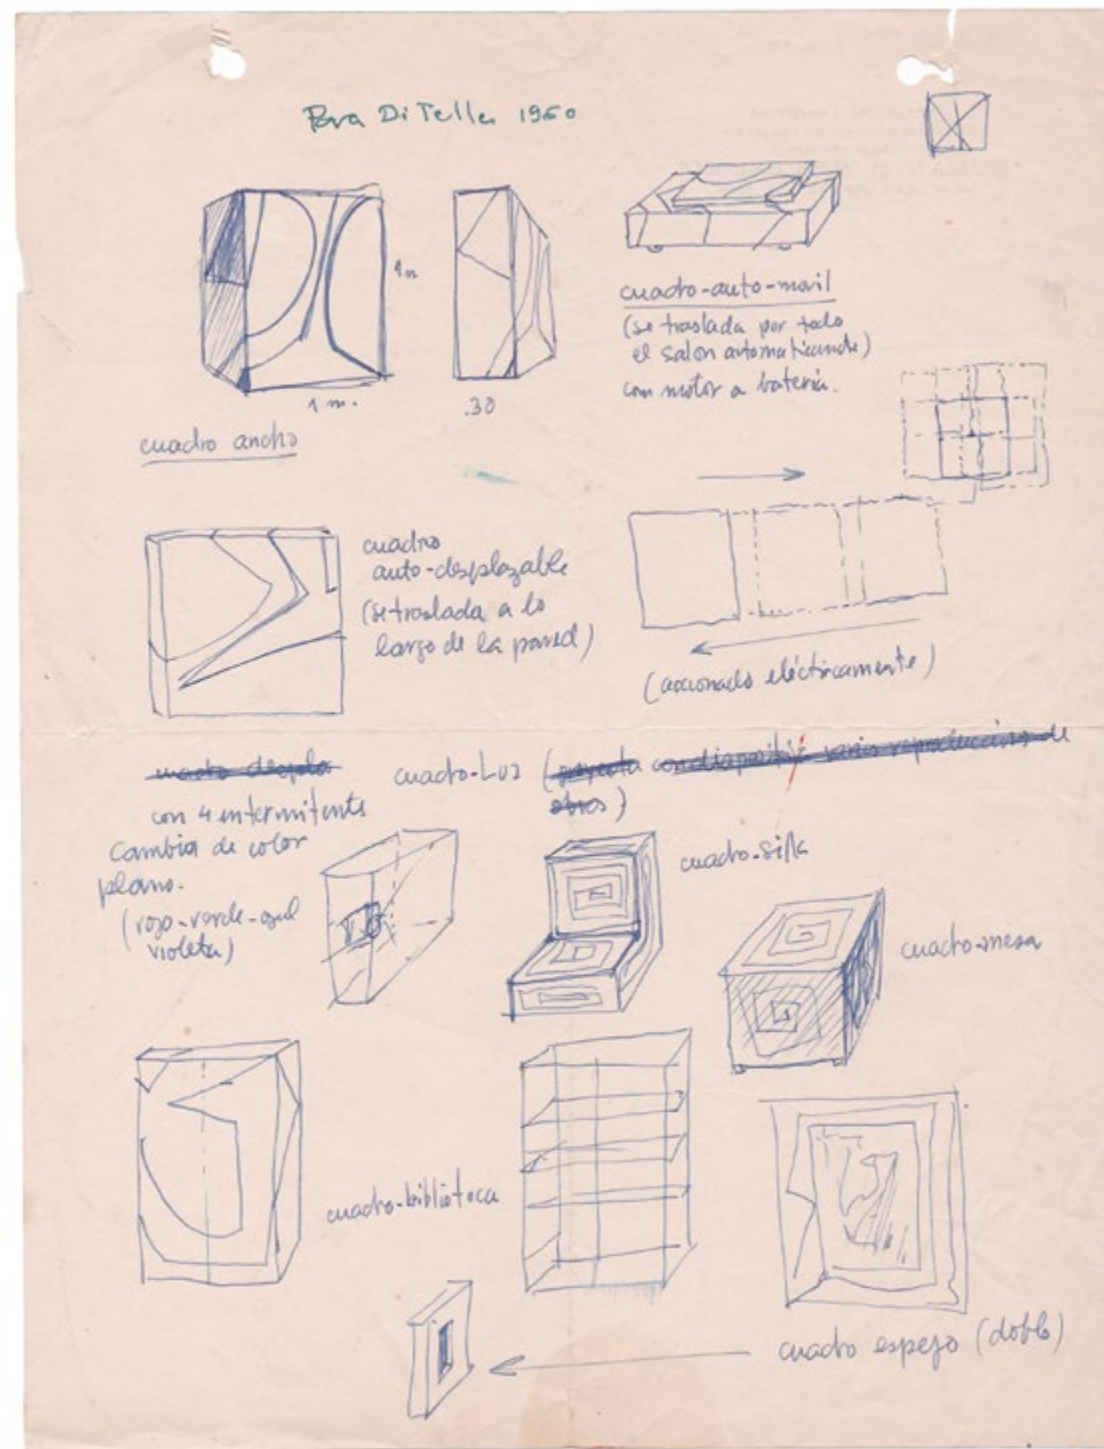 Para Di Tella 1960
1 m
1 m.
.30
cuadro ancho
cuadro-auto-movil
(se traslada por todo
el salon automaticamente)
con motor a bateria.
cuadro
auto-desplazable
(se traslada a lo
largo de la pared)
(accionado eléctricamente)
cuadro despla
cuadro-Luz (proyecta con diapositiv varias reproducciones de
obras)
con 4 intermitente
cambia de color
plano.
(rojo-verde-azul
violeta)
cuadro-silla
cuadro-mesa
cuadro-biblioteca
cuadro espejo (doble)